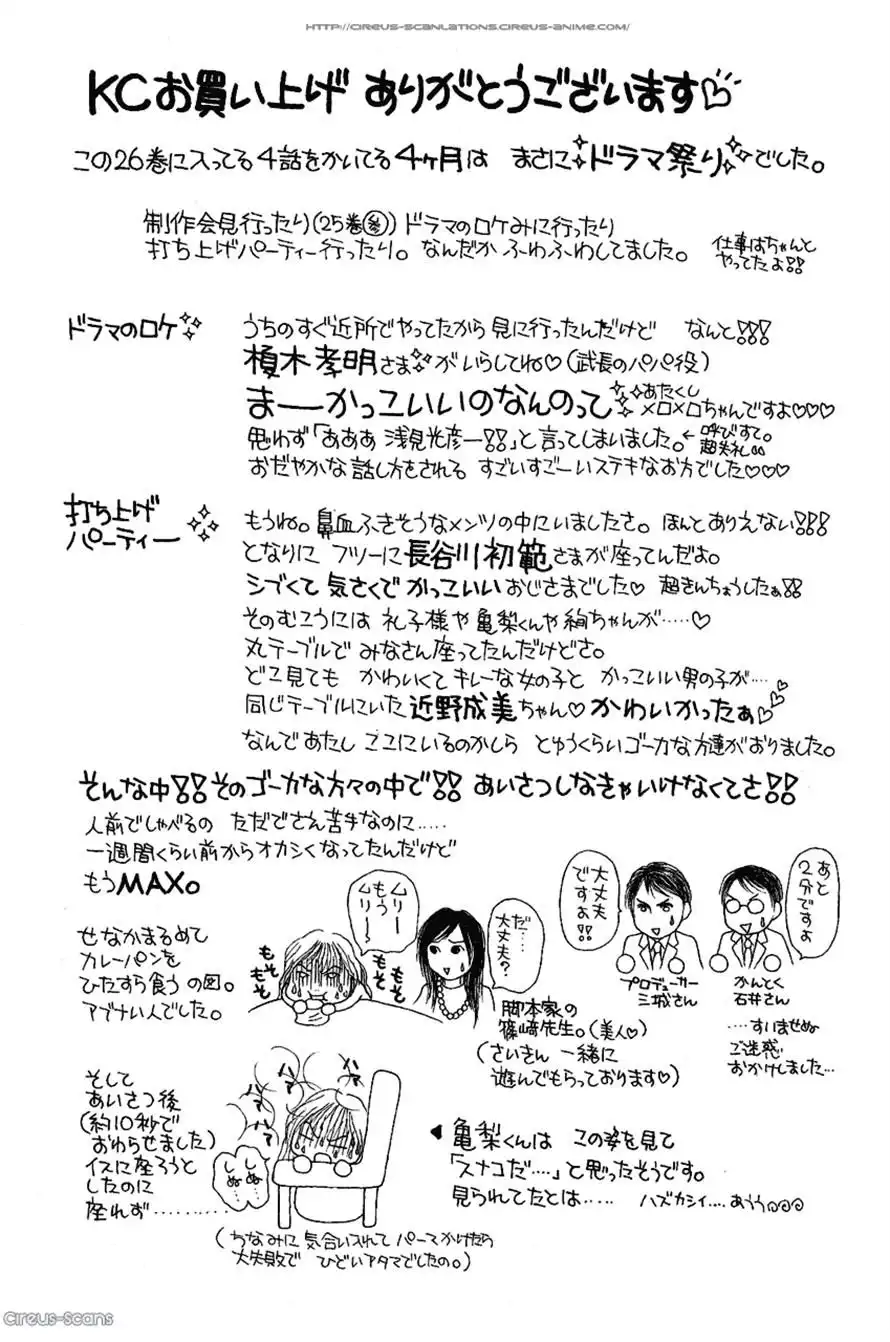 HTTP://CIREUS-SCANLATIONS.CIREUS-ANIME.COM/
KCお買い上げ ありがとうございます♡
この26巻に入ってる4話をかいてる4ヶ月は まさにドラマ祭りでした。
制作会見行ったり(25巻参)ドラマのロケみに行ったり
打ち上げパーティー行ったり。なんだか ふわふわしてました。
仕事はちゃんと
やってたよ!!
ドラマのロケ
うちのすぐ近所でやってたから 見に行ったんだけど なんと!!!
榎木孝明さまがいらしてね♡(武長のパパ役)
まーーかっこいいのなんのって
あたくし
メロメロちゃんですよ♡♡♡
思わず「あああ 浅見光彦ー!!」と言ってしまいました。
←呼びすて。
超失礼
おだやかな話し方をされる すごいすごーいステキなお方でした♡♡♡
打ち上げ
パーティー
もうね。鼻血ふきそうなメンツの中にいましたさ。ほんとありえない!!!
となりに フツーに長谷川初範さまが座ってんだよ。
シブくて 気さくで かっこいい おじさまでした♡ 超きんちょうしたぁ!!
そのむこうには 礼子様や亀梨くんや絢ちゃんが……♡
丸テーブルで みなさん座ってたんだけどさ。
どこ見ても かわいくてキレーな女の子と かっこいい男の子が…
同じテーブルにいた 近野成美ちゃん♡かわいかったぁ♡♡
なんであたし ここにいるのかしら とゆうくらいゴーカな方達がおりました。
そんな中!!そのゴーカな方々の中で!! あいさつしなきゃいけなくてさ!!
人前でしゃべるの ただでさえ苦手なのに……
一週間くらい前からオカシくなってたんだけど
もうMAX。
せなかまるめて
カレーパンを
ひたすら食う の図。
アブナい人でした。
もそ
もそ
もそ
もそ
ムリー
もう
ムリ〜
だ……
大丈夫?
脚本家の
篠﨑先生。(美人♡)
(さいきん 一緒に
遊んでもらっております♡)
大丈夫
ですよ!!
プロデューサー
三城さん
あと
2分ですよ
かんとく
石井さん
……すいませぬ
ご迷惑
おかけしました…
そして
あいさつ後
(約10秒で
おわらせました)
イスに座ろうと
したのに
座れず…………
しぬ…
しぬ…
(ちなみに 気合い入れて パーマかけたら
大失敗で ひどいアタマでしたの。)
亀梨くんは この姿を見て
「スナコだ……」と思ったそうです。
見られてたとは…… ハズカシイ…あうう
Cireus-Scans